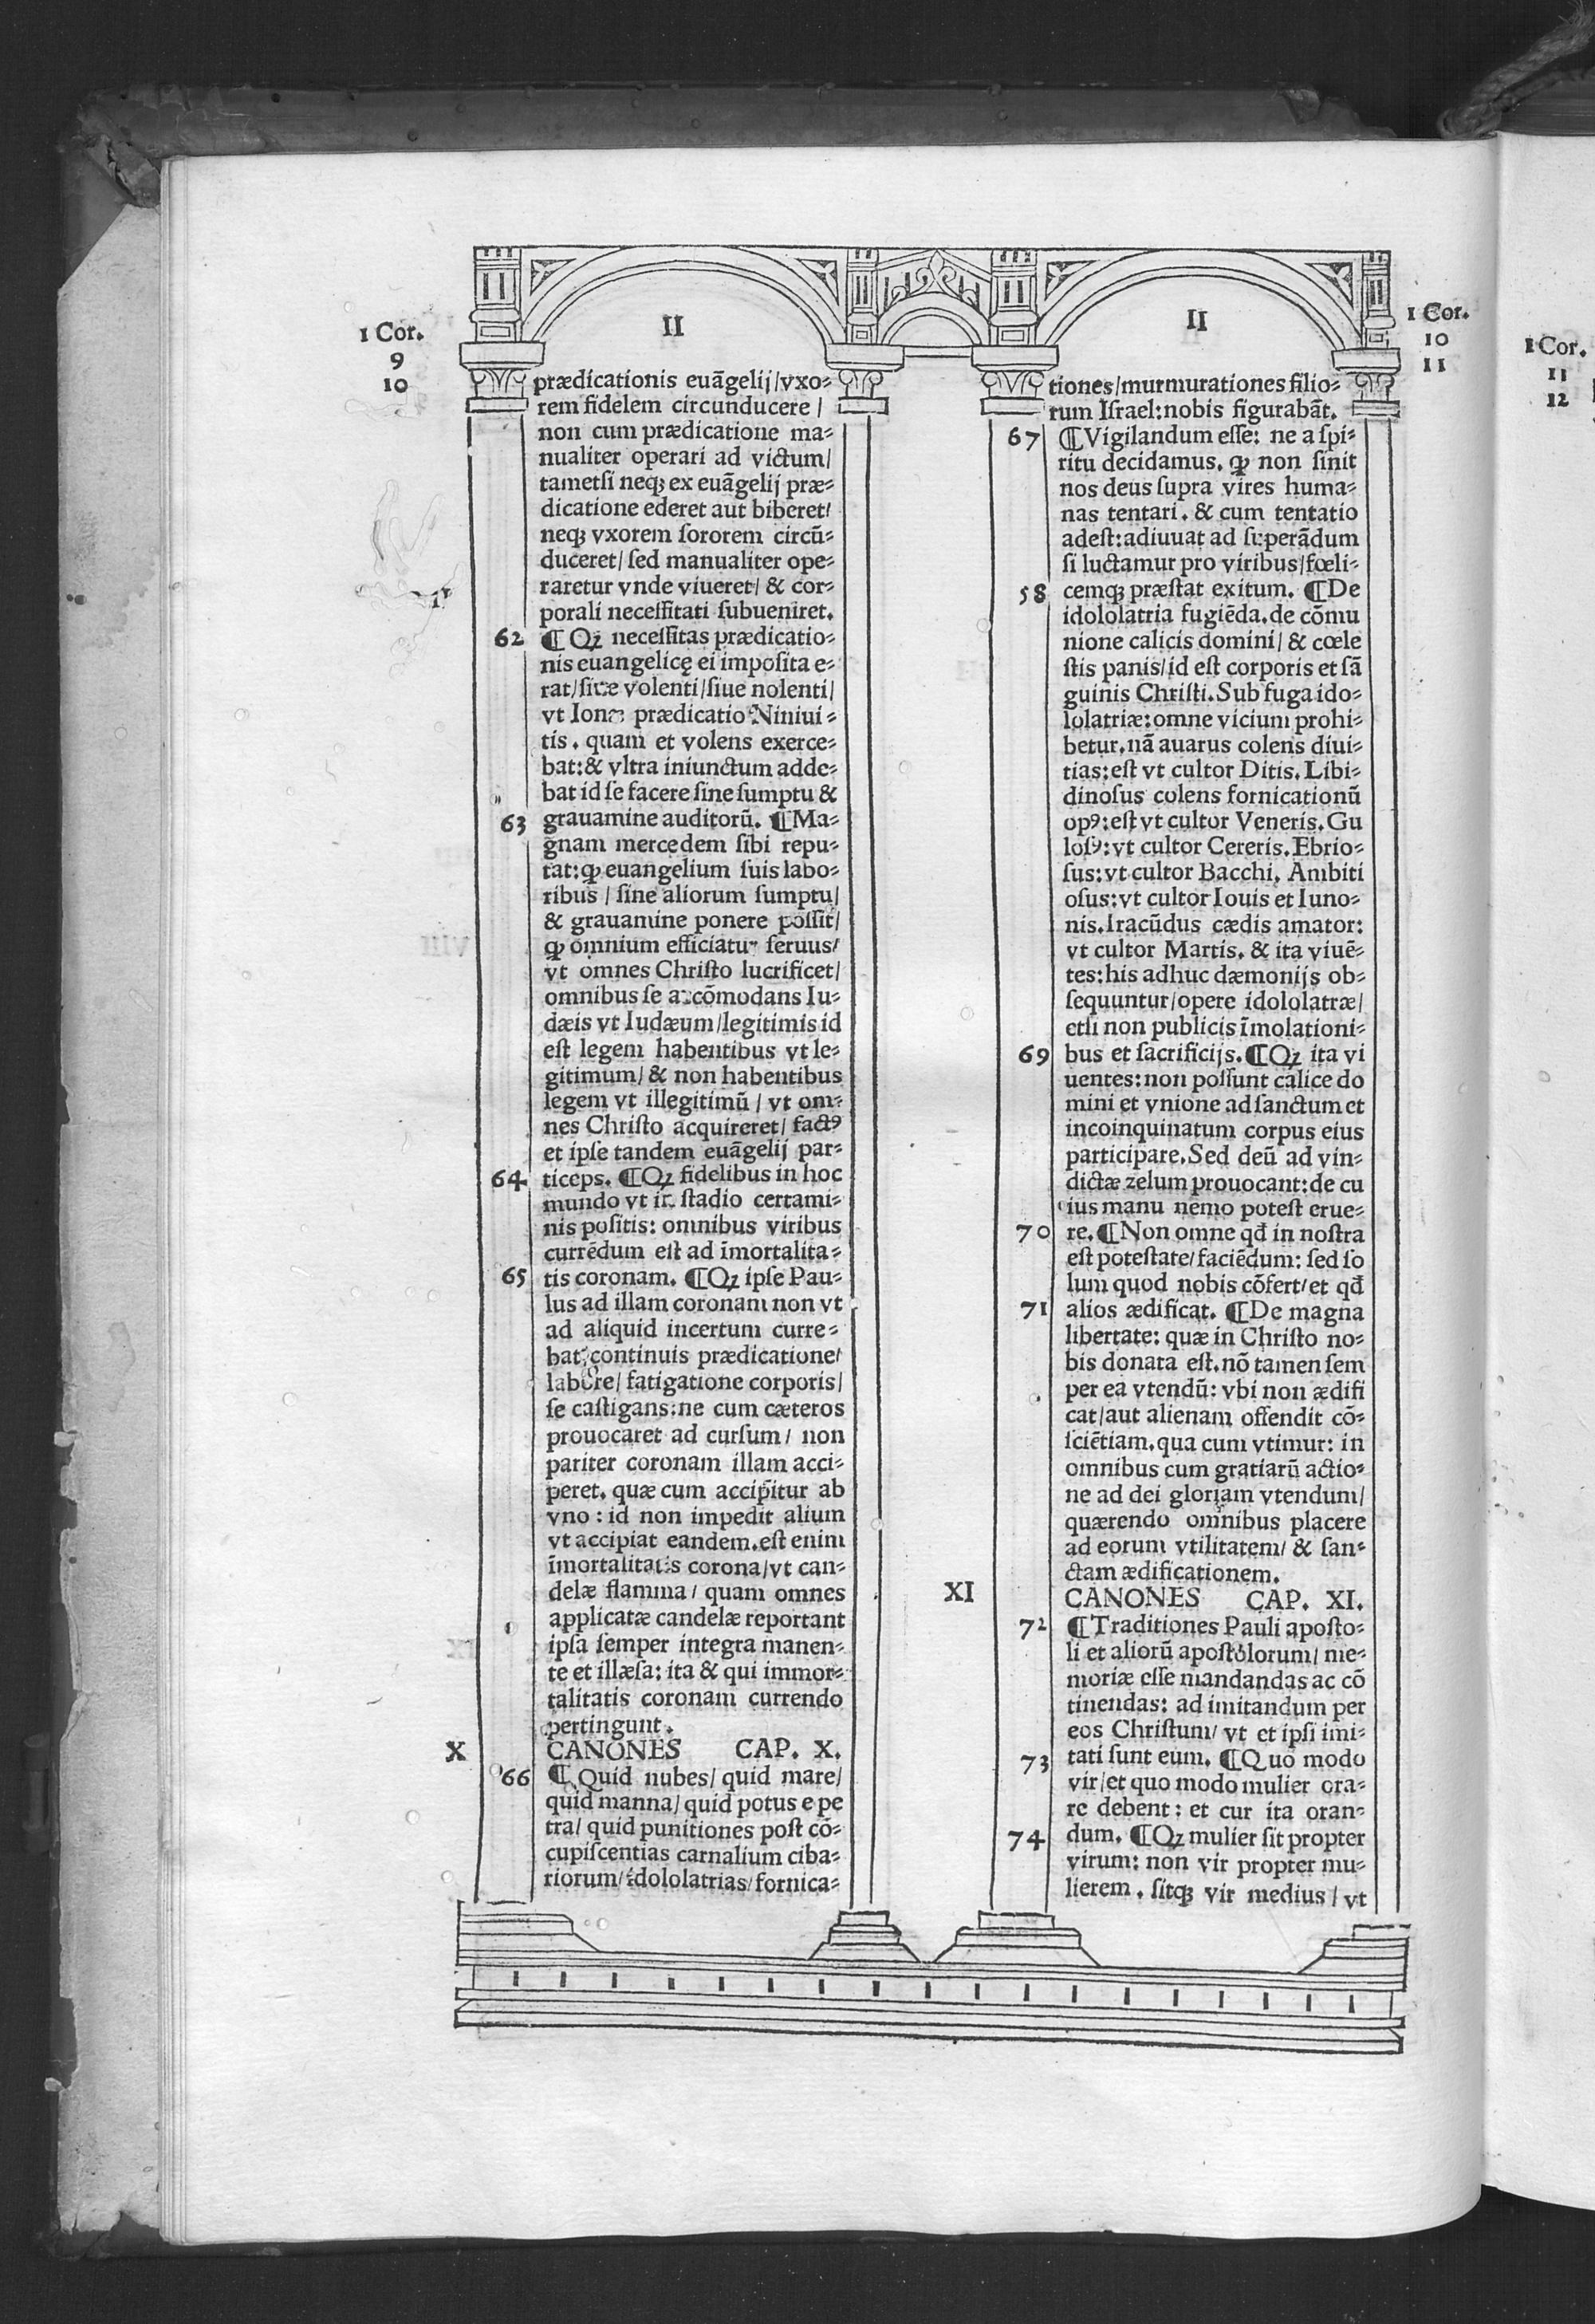 1 Cor.
9
10
II
prædicationis euãgelij/vxo⸗
rem fidelem circunducere/
non cum prædicatione ma⸗
nualiter operari ad victum/
tametsi neqꝫ ex euãgelij præ⸗
dicatione ederet aut biberet/
neqꝫ vxorem sororem circũ⸗
duceret/ sed manualiter ope⸗
raretur vnde viueret/ & cor⸗
porali necessitati subueniret.
62 ¶ Qꝫ necessitas prædicatio⸗
nis euangelicę ei imposita e⸗
rat/siue volenti/siue nolenti/
vt Ionæ prædicatio Niniui⸗
tis. quam et volens exerce⸗
bat:& vltra iniunctum adde⸗
bat id se facere sine sumptu &
63 grauamine auditorũ. ¶Ma⸗
gnam mercedem sibi repu⸗
tat:ꝙ euangelium suis labo⸗
ribus / sine aliorum sumptu/
& grauamine ponere possit/
ꝙ omnium efficiatur seruus/
vt omnes Christo lucrificet/
omnibus se accõmodans Iu⸗
dæis vt Iudæum/legitimis id
est legem habentibus vt le⸗
gitimum/ & non habentibus
legem vt illegitimũ / vt om⸗
nes Christo acquireret/ factꝰ
et ipse tandem euãgelij par⸗
64 ticeps. ¶Qꝫ fidelibus in hoc
mundo vt in stadio certami⸗
nis positis: omnibus viribus
currẽdum est ad ĩmortalita⸗
65 tis coronam. ¶Qꝫ ipse Pau⸗
lus ad illam coronam non vt
ad aliquid incertum curre⸗
bat: continuis prædicatione/
labore/ fatigatione corporis/
se castigans:ne cum cæteros
prouocaret ad cursum/ non
pariter coronam illam acci⸗
peret. quæ cum accipitur ab
vno : id non impedit alium
vt accipiat eandem.est enim
ĩmortalitatis corona/vt can⸗
delæ flamma/ quam omnes
applicatæ candelæ reportant
ipsa semper integra manen⸗
te et illæsa: ita & qui immor⸗
talitatis coronam currendo
pertingunt.
X CANONES CAP. X.
66 ¶ Quid nubes/ quid mare/
quid manna/ quid potus e pe
tra/ quid punitiones post cõ⸗
cupiscentias carnalium ciba⸗
riorum/idololatrias/fornica⸗
1 Cor.
10
11
II
tiones/murmurationes filio⸗
rum Israel:nobis figurabãt.
67 ¶Vigilandum esse: ne a spi⸗
ritu decidamus. ꝙ non sinit
nos deus supra vires huma⸗
nas tentari. & cum tentatio
adest:adiuuat ad superãdum
si luctamur pro viribus/fœli⸗
58 cemqꝫ præstat exitum. ¶De
idololatria fugiẽda.de cõmu
nione calicis domini/ & cœle
stis panis/id est corporis et sã
guinis Christi.Sub fuga ido⸗
lolatriæ:omne vicium prohi⸗
betur.nã auarus colens diui⸗
tias:est vt cultor Ditis. Libi⸗
dinosus colens fornicationũ
opꝰ:est vt cultor Veneris.Gu
losꝰ:vt cultor Cereris.Ebrio⸗
sus:vt cultor Bacchi. Ambiti
osus:vt cultor Iouis et Iuno⸗
nis.Iracũdus cædis amator:
vt cultor Martis. & ita viuẽ⸗
tes:his adhuc dæmonijs ob⸗
sequuntur/opere idololatræ/
etsi non publicis ĩmolationi⸗
69 bus et sacrificijs.¶Qꝫ ita vi
uentes:non possunt calice do
mini et vnione ad sanctum et
incoinquinatum corpus eius
participare.Sed deũ ad vin⸗
dictæ zelum prouocant:de cu
ius manu nemo potest erue⸗
70 re.¶Non omne qđ in nostra
est potestate/faciẽdum: sed so
lum quod nobis cõfert/et qđ
71 alios ædificat. ¶De magna
libertate: quæ in Christo no⸗
bis donata est.nõ tamen sem
per ea vtendũ: vbi non ædifi
cat/aut alienam offendit cõ⸗
sciẽtiam.qua cum vtimur: in
omnibus cum gratiarũ actio⸗
ne ad dei gloriam vtendum/
quærendo omnibus placere
ad eorum vtilitatem/ & san⸗
ctam ædificationem.
XI CANONES CAP. XI.
72 ¶Traditiones Pauli aposto⸗
li et aliorũ apostolorum/ me⸗
moriæ esse mandandas ac cõ
tinendas: ad imitandum per
eos Christum/ vt et ipsi imi⸗
73 tati sunt eum. ¶Quo modo
vir/et quo modo mulier ora⸗
re debent: et cur ita oran⸗
74 dum. ¶Qꝫ mulier sit propter
virum: non vir propter mu⸗
lierem. sitqꝫ vir medius/ vt
1 Cor.
11
12